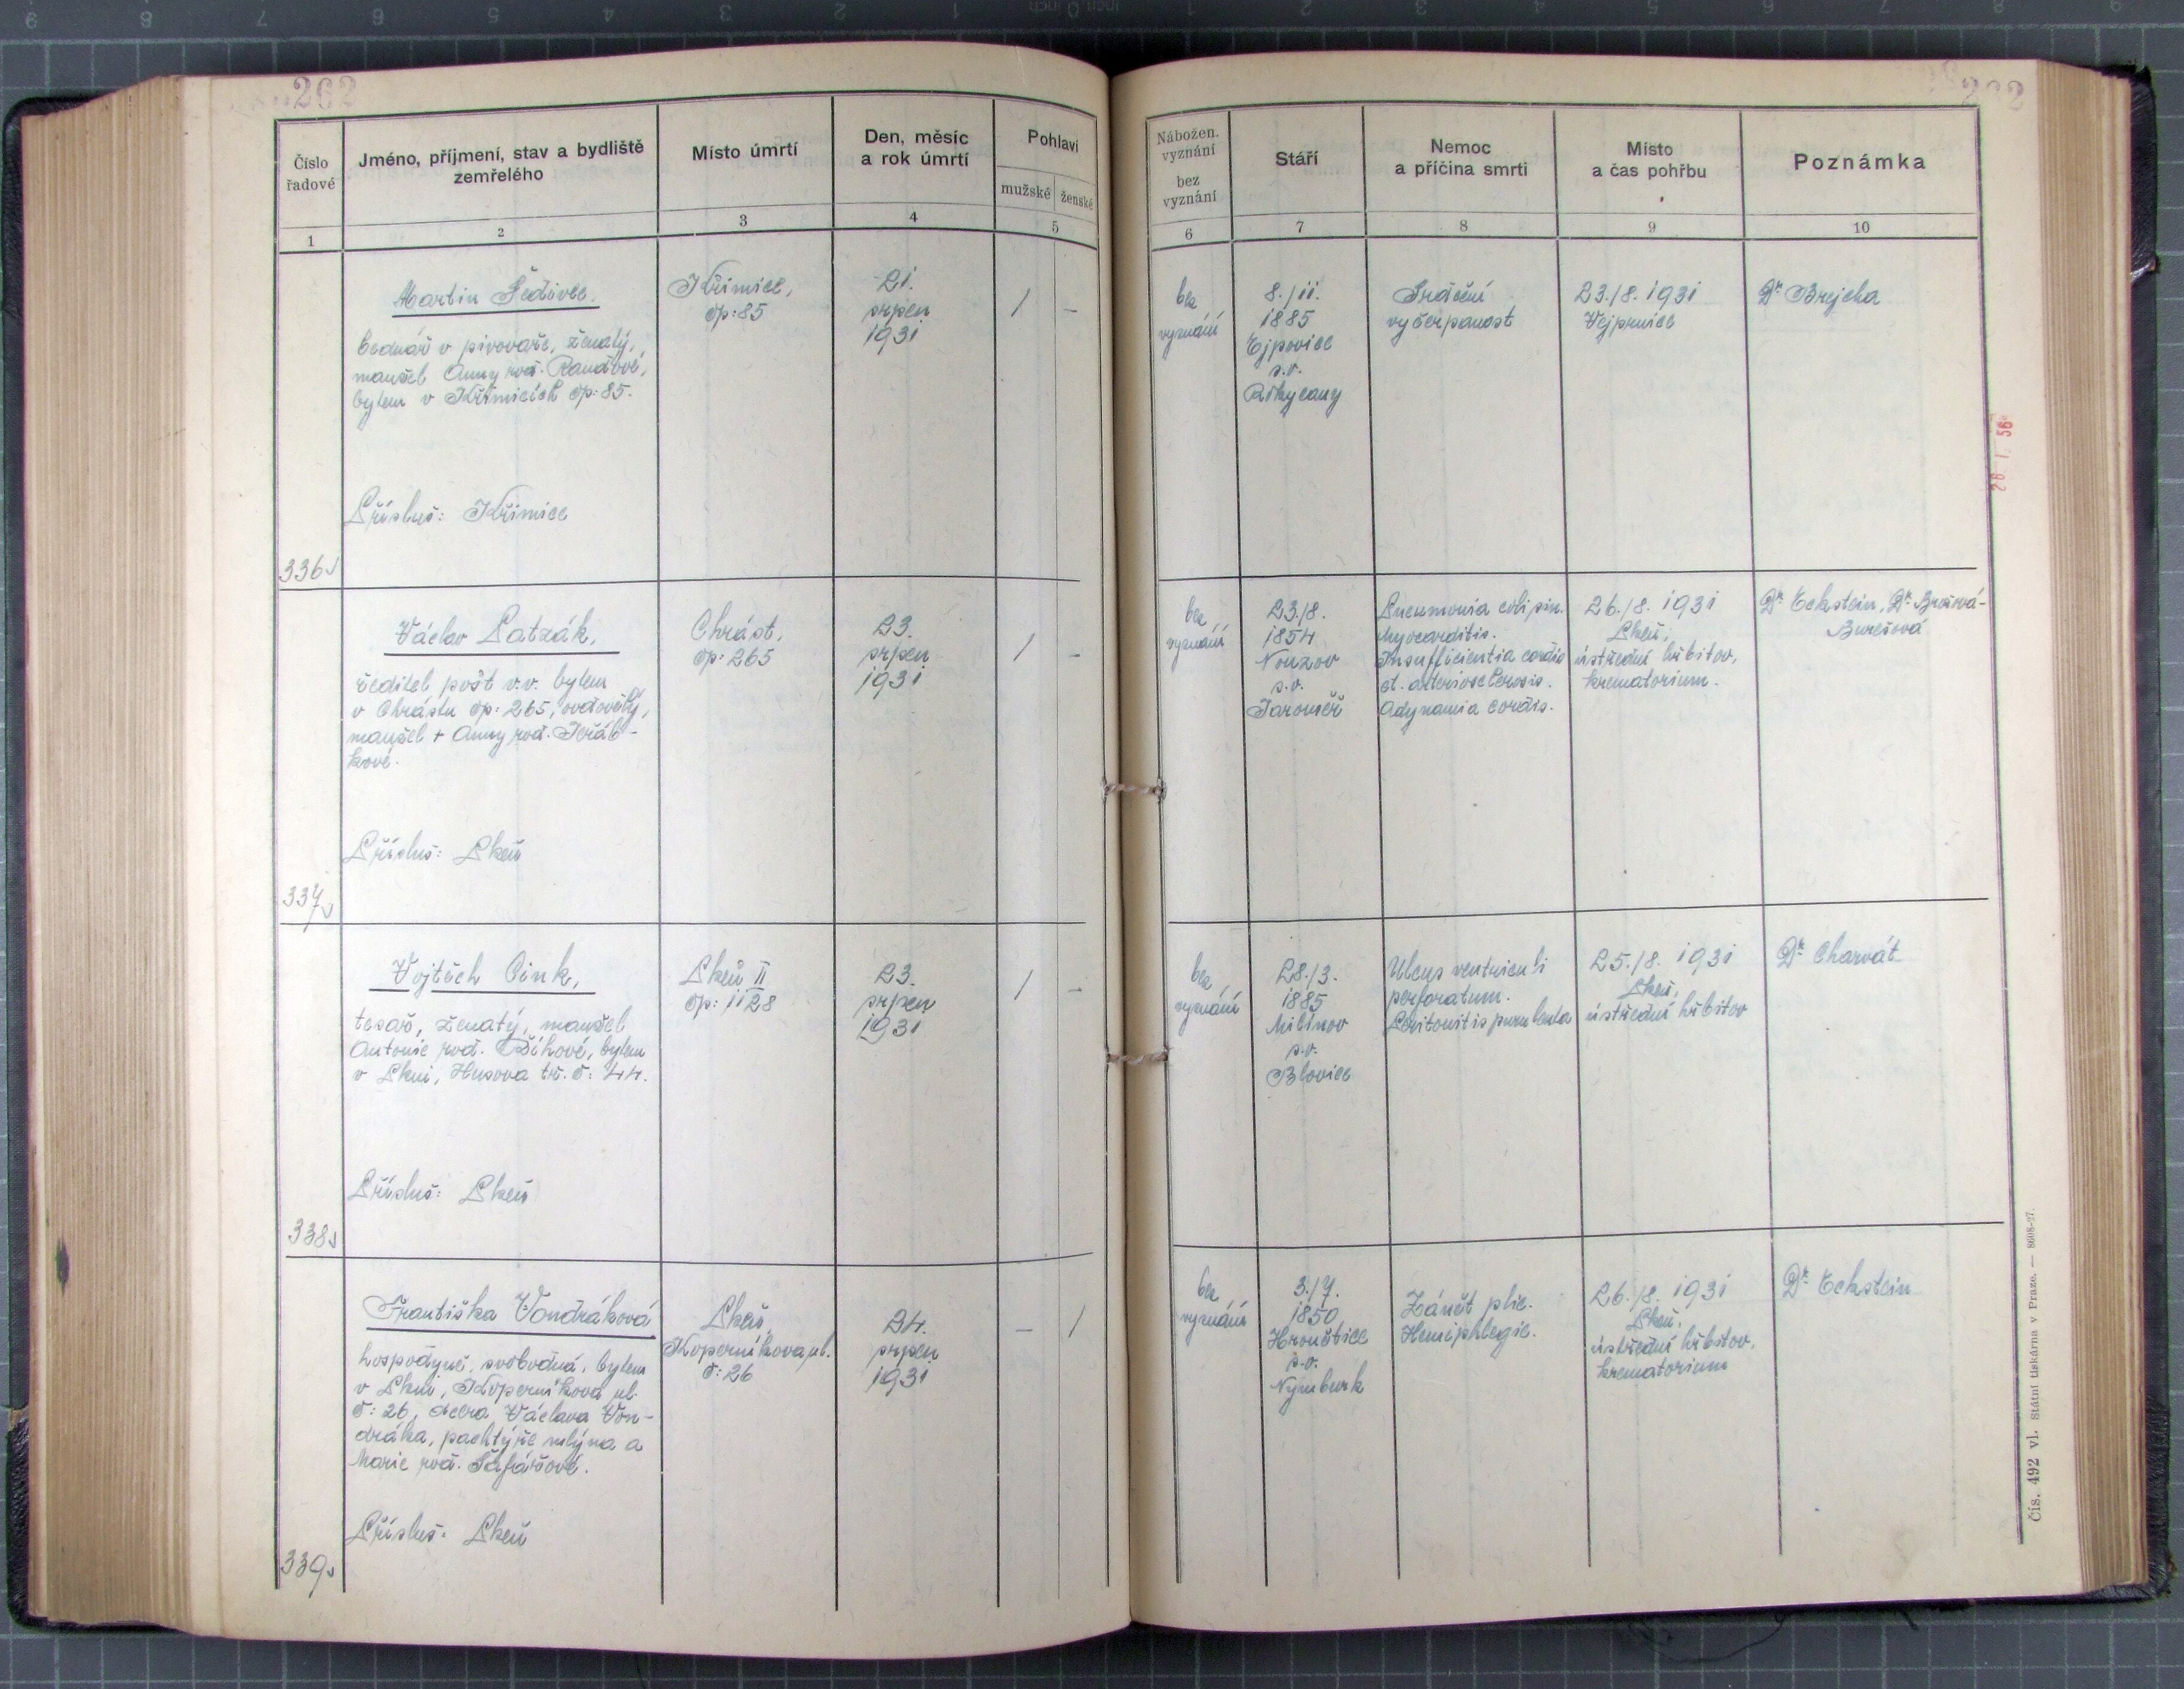 262
Číslo
řadové
Jméno, příjmení, stav a bydliště
zemřelého
Místo úmrtí
Den, měsíc
a rok úmrtí
Pohlaví
mužské
ženské
1
2
3
4
5
Martin Šedivec,
bednář v pivovaře, ženatý,
manžel Anny roz.
bylem v Křimicích čp: 85.
Přísluš: Křimice
336
Křimice,
čp: 85
21.
srpen
1931
/ -
Václav Patzák,
ředitel pošt v.v. bylem
v Chrástu čp: 265, ovdovělý,
manžel + Anny roz. Jeřáb-
kové.
Přísluš: Plzeň
337
Chrást,
čp: 265
23.
srpen
1931
/ -
Vojtěch Cink,
tesař, ženatý, manžel
Antonie roz. bylem
v Plzni, Husova tř. č: 44.
Přísluš: Plzeň
338
Plzeň II
čp: 1128
23.
srpen
1931
/ -
Františka Vondráková
hospodyně, svobodná, bylem
v Plzni, Koperníkova ul.
č: 26, dcera Václava Von-
dráka, pachtýře mlýna a
Marie roz. Šafářové.
Přísluš: Plzeň
339
Plzeň,
Koperníkova ul.
č: 26
24.
srpen
1931
- /
Nábožen.
vyznání
bez
vyznání
Stáří
Nemoc
a příčina smrti
Místo
a čas pohřbu
Poznámka
6
7
8
9
10
bez
vyznání
8./11.
1885
Ejpovice
s.o.
Rokycany
Srdeční
vyčerpanost
23./8. 1931
Vejprnice
Dr Brejcha
bez
vyznání
23./8.
1854
Nouzov
s.o.
Jaroměř
Pneumonia
Myocarditis.
Insufficientia cordis
et. arteriosclerosis.
Adynamia cordis.
26./8. 1931
Plzeň,
ústřední hřbitov,
krematorium.
Dr Eckstein, Dr
Burešová
bez
vyznání
28./3.
1885
Milínov
s.o.
Blovice
Ulcus ventriculi
perforatum.
Peritonitis purulenta
25./8. 1931
Plzeň,
ústřední hřbitov
Dr Charvát
bez
vyznání
3./7.
1850
Hronětice
s.o.
Nymburk
Zánět plic.
Hemiphlegie.
26./8. 1931
Plzeň,
ústřední hřbitov,
krematorium
Dr Eckstein
28 1. 56
Čís. 492 vl. Státní tiskárna v Praze. — 8608-27.